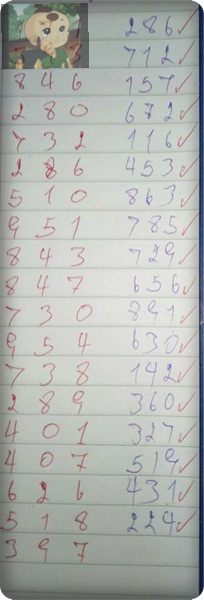 286✓
712✓
8 4 6 157✓
2 8 0 672✓
7 3 2 116✓
2 8 6 453✓
5 1 0 863✓
9 5 1 785✓
8 4 3 729✓
8 4 7 656✓
7 3 0 891✓
9 5 4 630✓
7 3 8 142✓
2 8 9 360✓
4 0 1 327✓
4 0 7 519✓
6 2 6 431✓
5 1 8 229✓
3 9 7